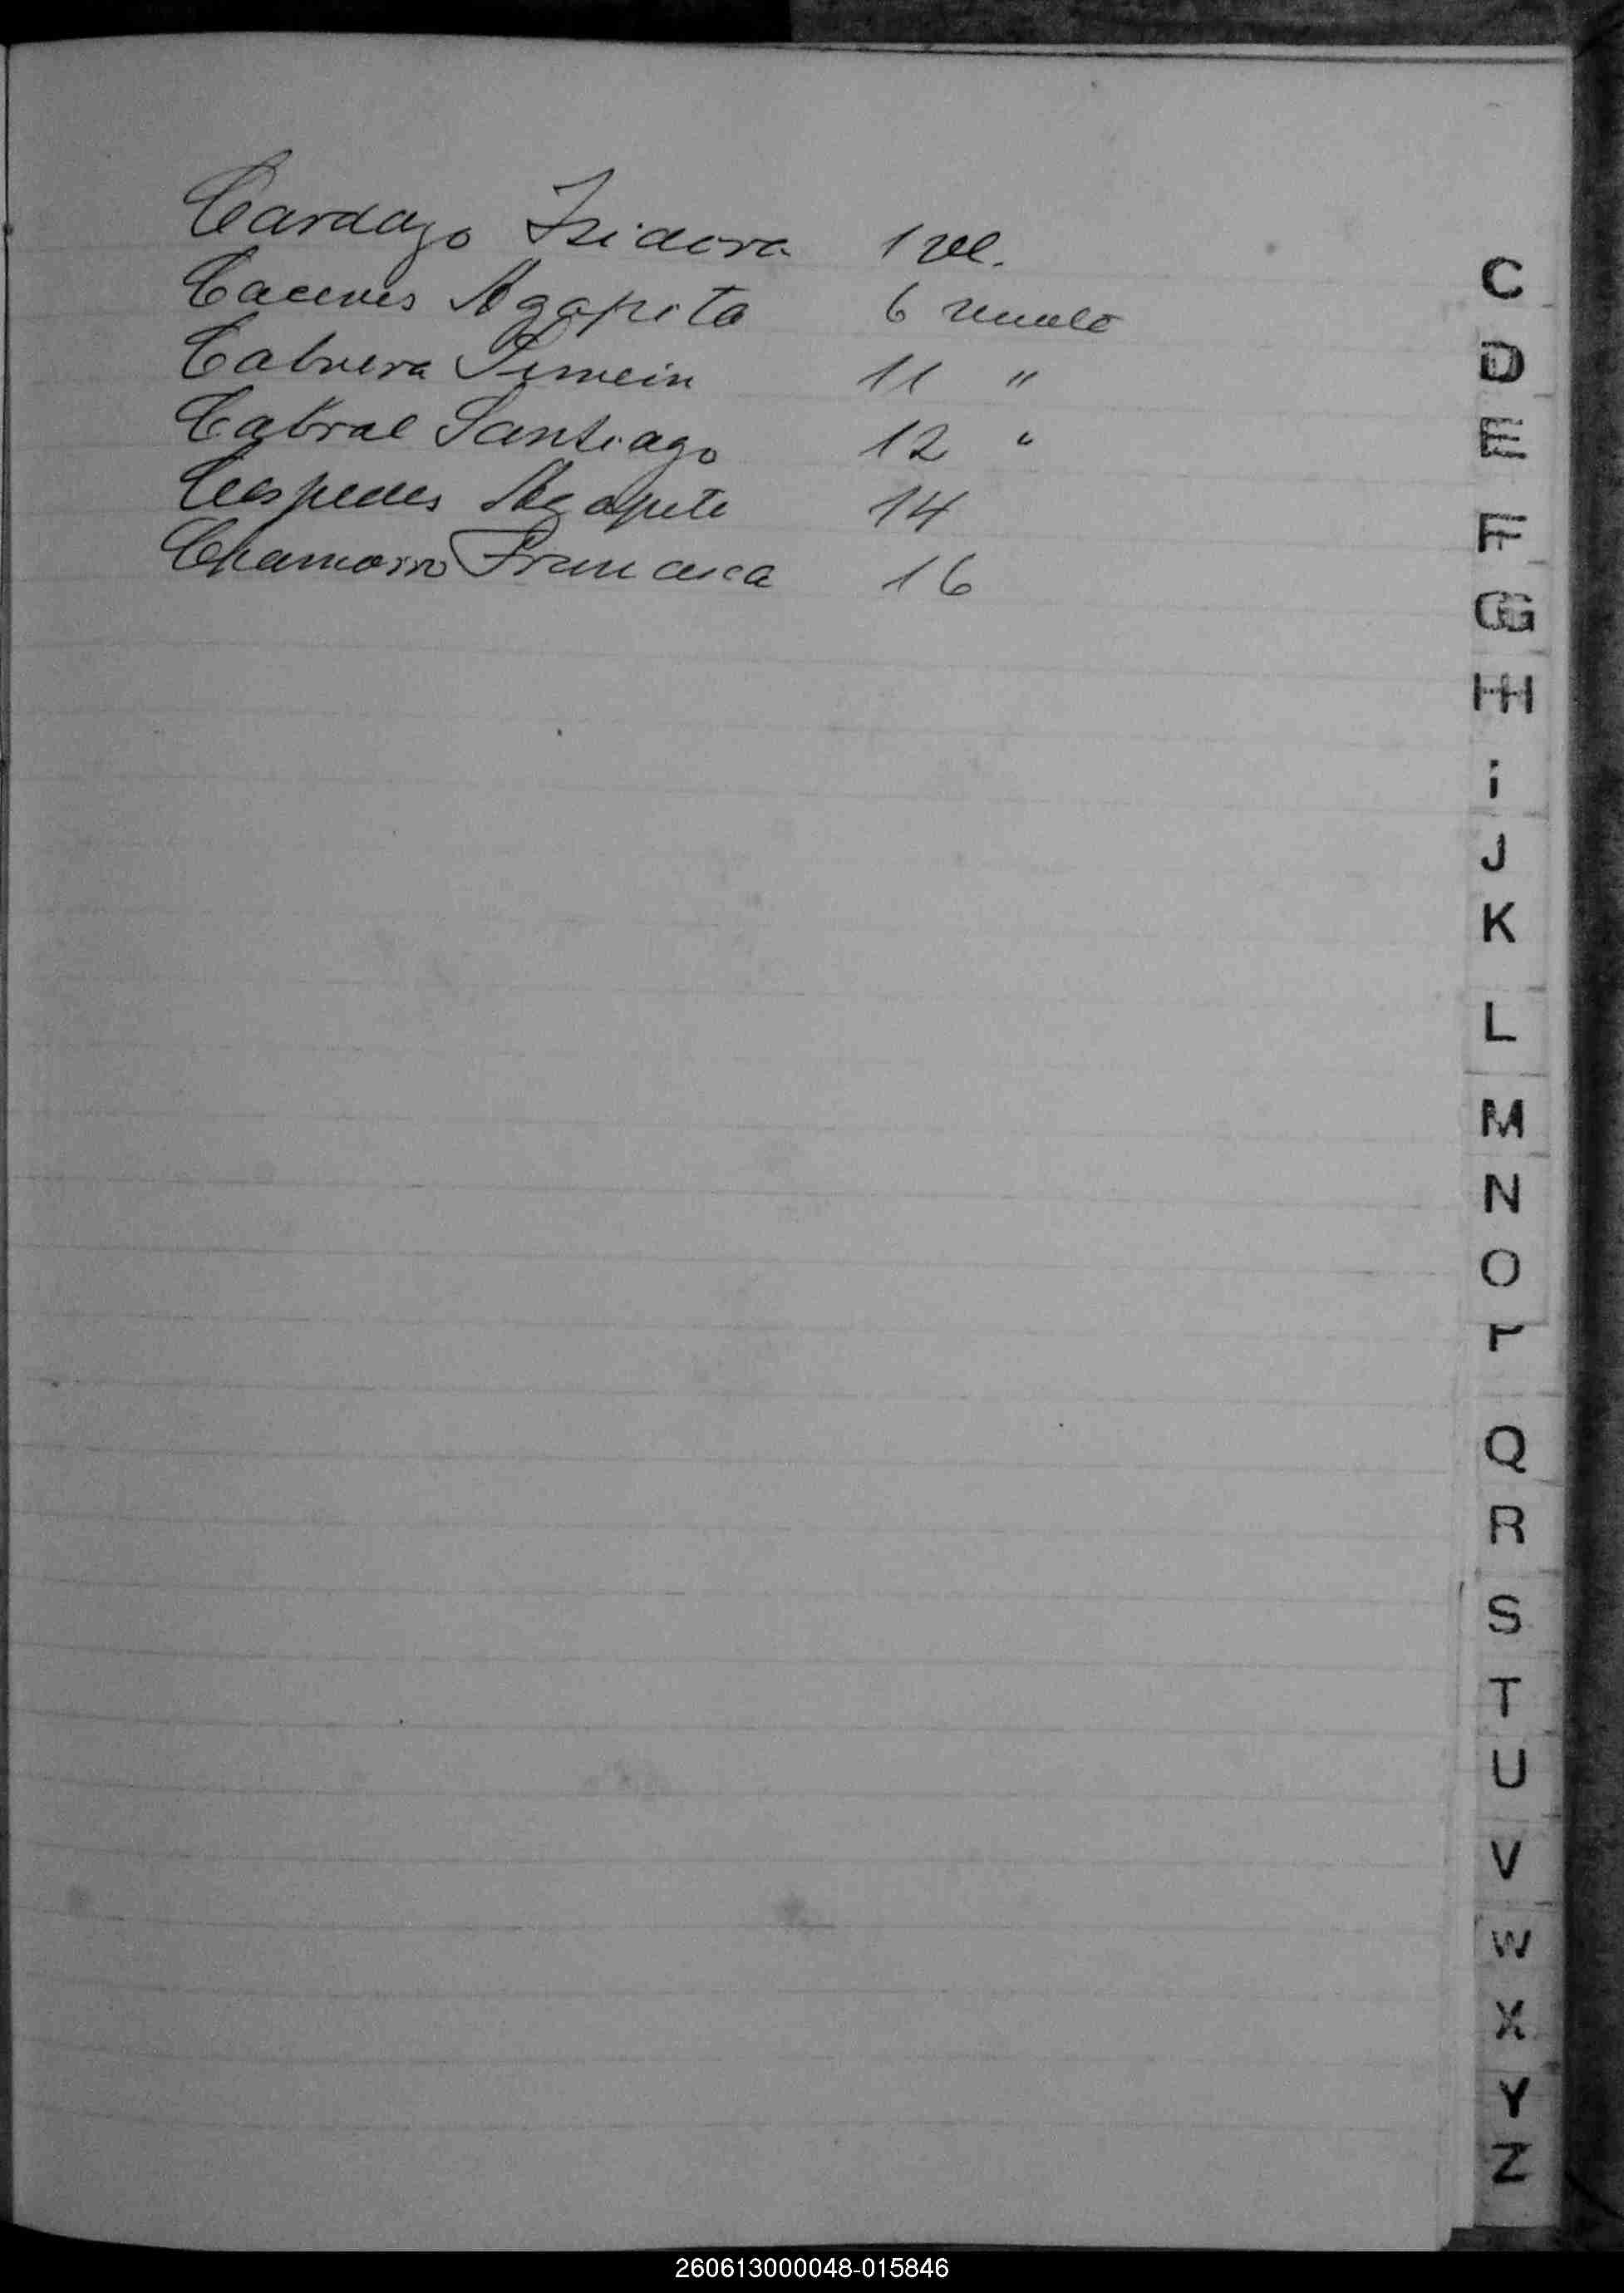 Cardazo Isidora 1 vol.
Caceres Agapita 6 vuelto
Cabrera Fermin 11 "
Cabral Santiago 12 "
Cespedes Agapito 14
Chamorro Francisca 16
C
D
E
F
G
H
i
J
K
L
M
N
O
P
Q
R
S
T
U
V
W
X
Y
Z
260613000048-015846